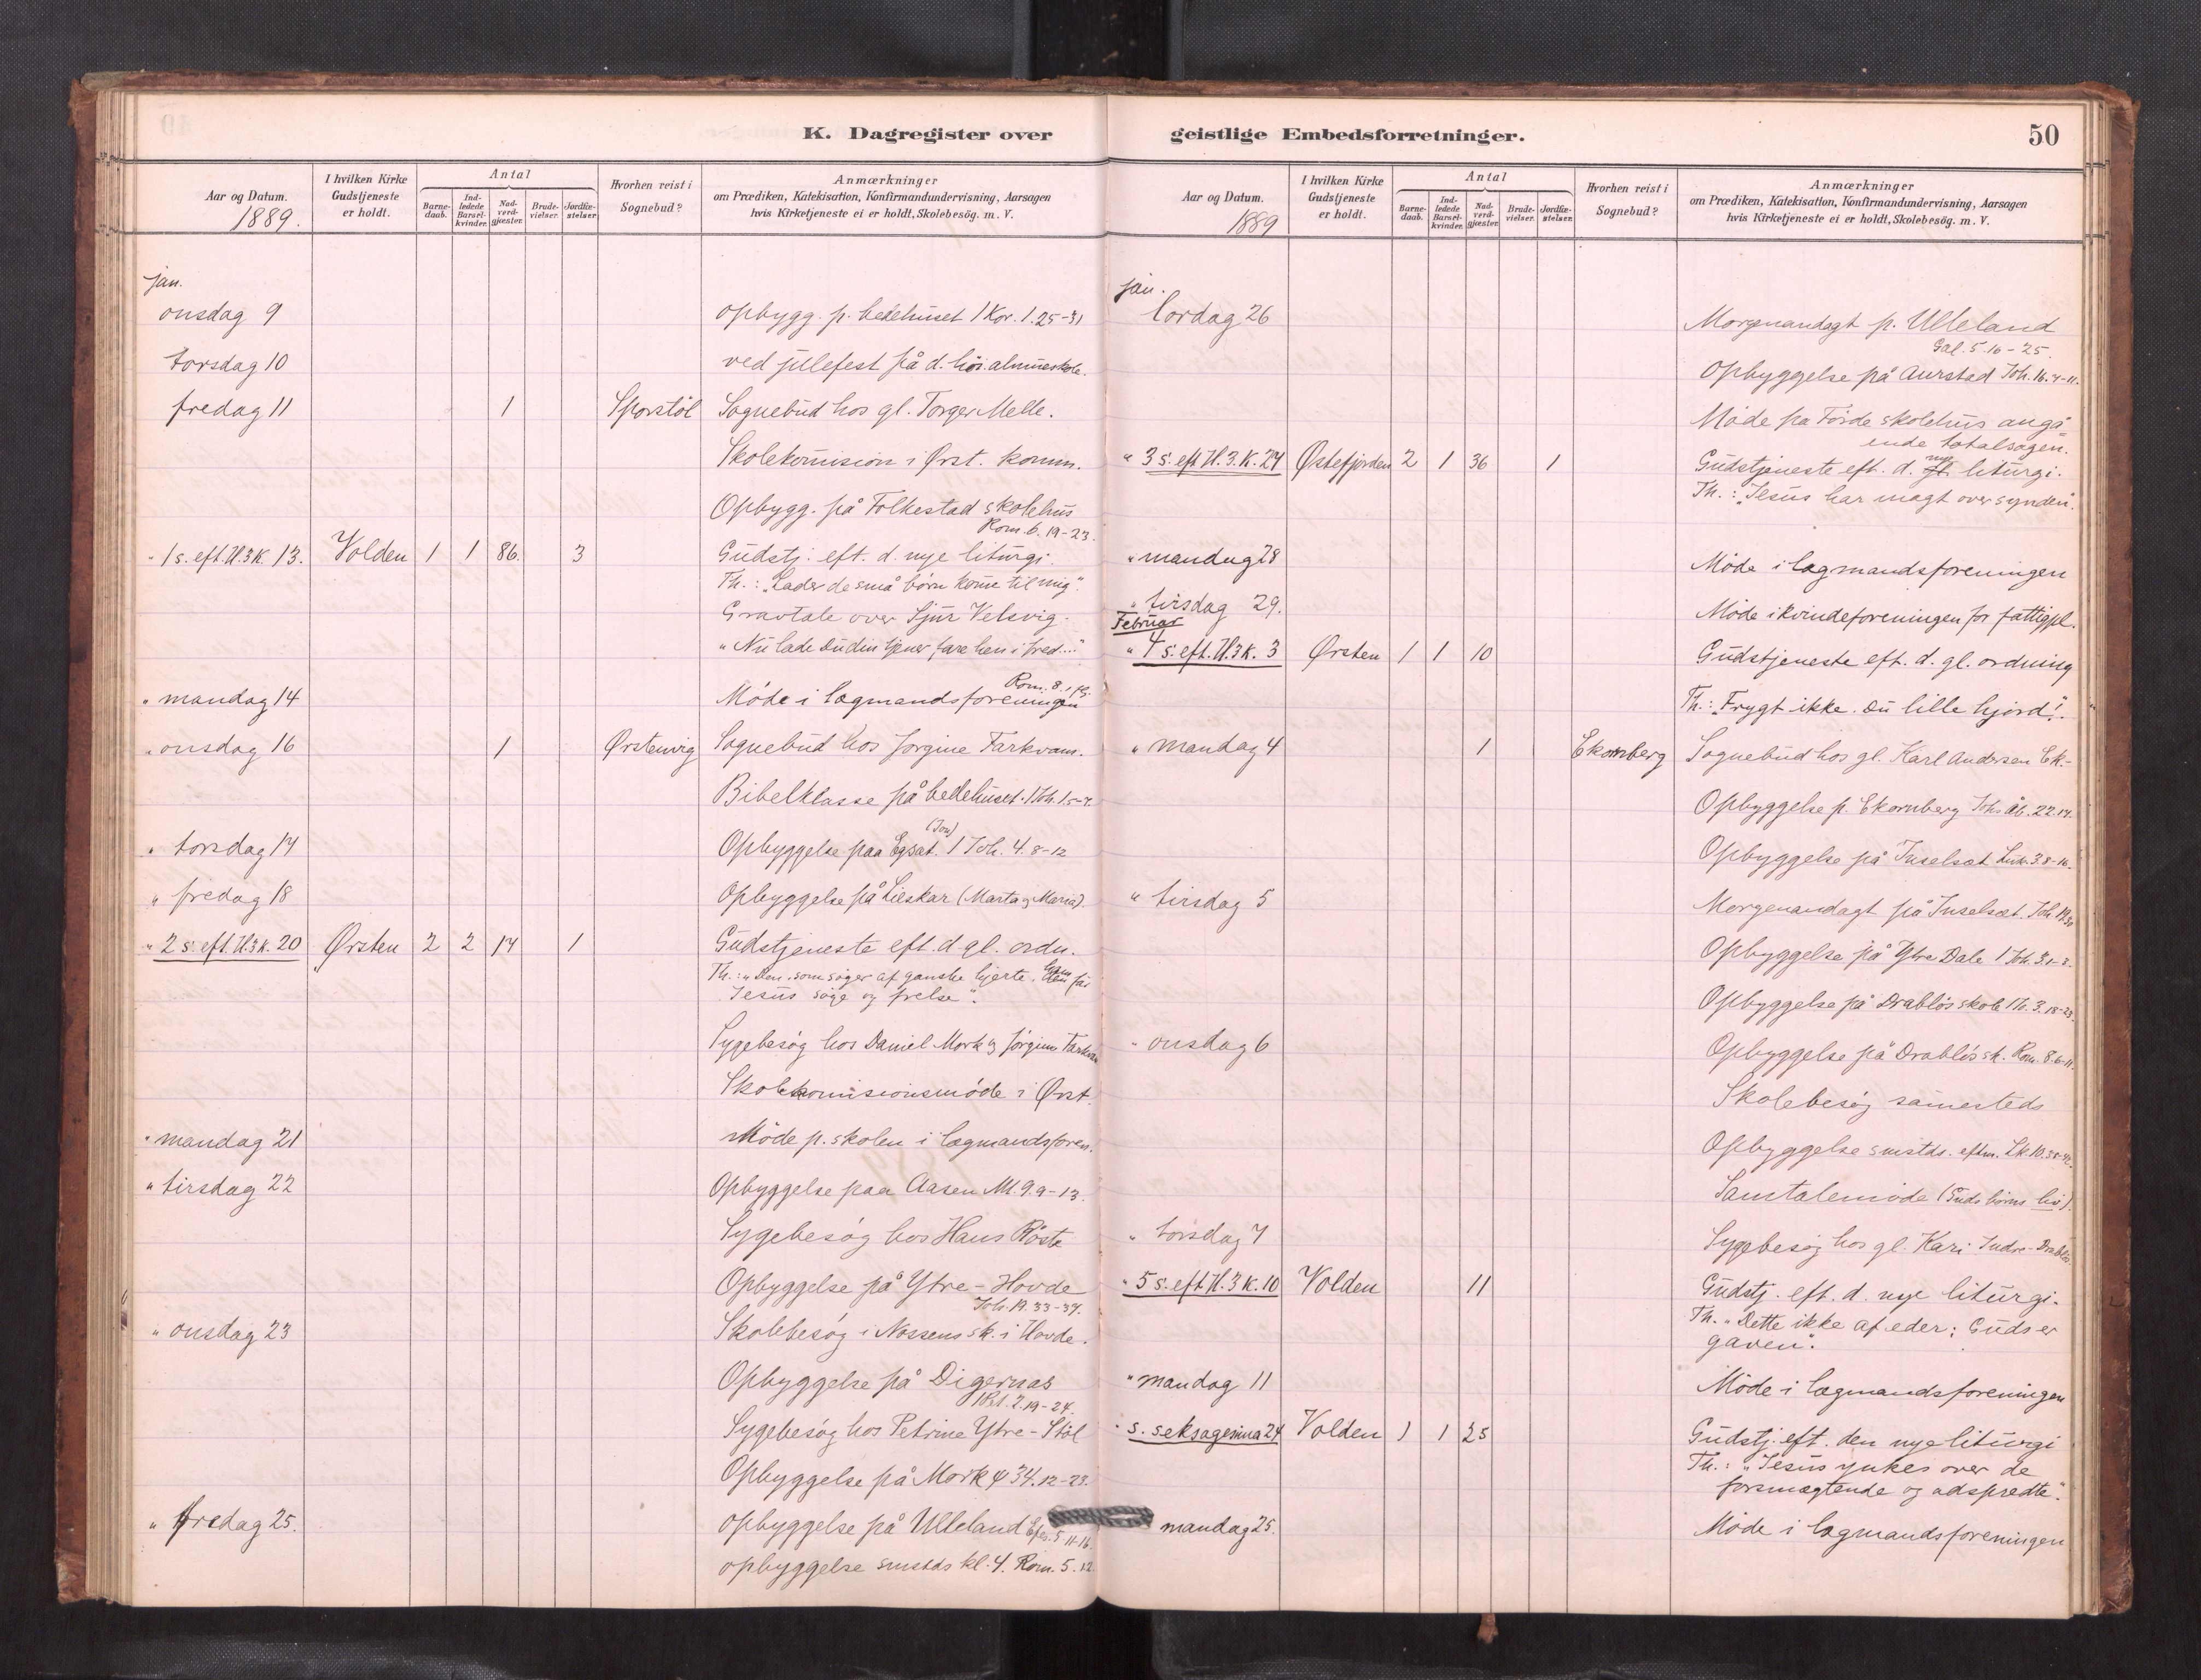 K. Dagregister over
Aar og Datum.
1889.
I hvilken Kirke
Gudstjeneste
er holdt.
Antal
Barne-
daab.
Ind-
ledede
Barsel-
kvinder.
Nad-
verd-
gjæster.
Brude-
vielser.
Jordfæ-
stelser.
Hvorhen reist i
Sognebud?
Anmærkninger
om Prædiken, Katekisation, Konfirmandundervisning, Aarsagen
hvis Kirketjeneste ei er holdt, Skolebesög. m. V.
jan.
onsdag 9 opbygg. p. bedehuset 1 Kor. 1.25-31
torsdag 10 ved julefest på d. høi. almueskole.
fredag 11 1 Sporstöl Sognebud hos gl. Torger Melle.
Skolekomision i Ørst. komm.
Opbygg. på Folkestad skolehus
Rom. 6. 19-23.
" 1 s. eft. H.3K. 13. Volden 1 1 86. 3 Gudstj. eft. d. nye liturgi.
Th.: "Lader de små børn kome til mig".
Gravtale over Sjur Velsvig.
"Nu lade Du din tjener fare hen i fred..."
Rom. 8.1 flg.
" mandag 14 Möde i lægmandsforeningen
" onsdag 16 1 Ørstenvig Sognebud hos Jorgine Farkvam.
Bibelklasse på bedehuset. 1 Joh. 1.5-7.
" torsdag 17 Opbyggelse paa Egsæt. 1 Joh. 4.8-12
" fredag 18 Opbyggelse på Lilskar (Marta og Maria).
" 2 s. eft. H.3K. 20 Ørsten 2 2 17 1 Gudstjeneste eft. d. gl. ordn.
Th.: "Den, som søger af ganske hjerte,
Jesus søge og frelse".
Sygebesøg hos Daniel Mork og Jørgine Farkvam
Skolekomisionsmöde i Ørst.
" mandag 21 Möde p. skolen i lægmandsforen.
" tirsdag 22 Opbyggelse paa Aasen M. 9.9-13.
Sygebesøg hos Hans Röste
Opbyggelse på Ytre-Hovde
Joh. 19. 33-37.
" onsdag 23 Skolebesøg i Nossens sk. i Hovde.
Opbyggelse på Digernæs
1 Pet. 2.19-24.
Sygebesøg hos Petrine Ytre-Stöl
Opbyggelse på Mork ψ 34.12-23.
" fredag 25. opbyggelse på Ulleland Efes. 5 11-16.
opbyggelse smstds kl. 4. Rom. 5.12
geistlige Embedsforretninger.
50
Aar og Datum.
1889
I hvilken Kirke
Gudstjeneste
er holdt.
Antal
Barne-
daab.
Ind-
ledede
Barsel-
kvinder.
Nad-
verd-
gjæster.
Brude-
vielser.
Jordfæ-
stelser.
Hvorhen reist i
Sognebud?
Anmærkninger
om Prædiken, Katekisation, Konfirmandundervisning, Aarsagen
hvis Kirketjeneste ei er holdt, Skolebesög. m. V.
jan.
lördag 26 Morgenandagt p. Ulleland
Gal. 5.16-25.
Opbyggelse på Aurstad Joh. 16.7-11.
Möde pa Förde skolehus angå=
ende totalsagen.
" 3 s. eft H.3.K. 27 Østefjorden 2 1 36 1 Gudstjeneste eft. d. nye liturgi.
Th.: "Jesus har magt over synden".
" mandag 28 Möde i lægmandsforeningen
" tirsdag 29. Möde i kvindeforeningen for fattigpl.
Februar
" 4 s. eft. H.3K. 3 Ørsten 1 1 10 Gudstjeneste eft. d. gl. ordning
Th.: "Frygt ikke. Du lille hjord!".
" mandag 4 1 Ekornberg Sognebud hos gl. Karl Andersen Ek.-
Opbyggelse p. Ekornberg Johs åb. 22.17.
Opbyggelse på Inselsæt Luk. 3.8-16.
" tirsdag 5 Morgenandagt på Inselsæt. Joh 19.30
Opbyggelse på Ytre Dale 1 Joh. 3.1-3.
Opbyggelse på Drabløs skole 1 Jh. 3.18-23.
" onsdag 6 Opbyggelse på Drabløs sk. Rom. 8.6-11.
Skolebesøg samesteds
Opbyggelse smstds. eftm. Lk 10.38-42.
Samtalemöde (Guds börns liv).
" torsdag 7 Sygebesøg hos gl. Kari Indre-Drabløs
" 5 s. eft H.3K. 10 Volden 11 Gudstj. eft. d. nye liturgi.
Th. "Dette ikke af eder; Guds er
gaven".
" mandag 11 Möde i lægmandsforeningen
" s. seksagesima 24 Volden 1 1 25 Gudstj. eft. den nye liturgi
Th.: "Jesus ynkes over de
forsmægtende og adspredte".
mandag 25. Möde i lægmandsforeningen